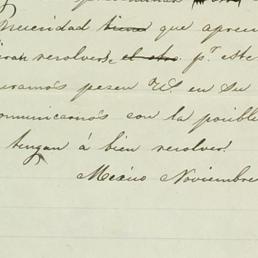 nuceridad tiene que aprecia
resolverse el otro pr. este
eramos pesen Us en su
comunicarnos con la posible
tengan á bien resolver.
Mexico Noviembre